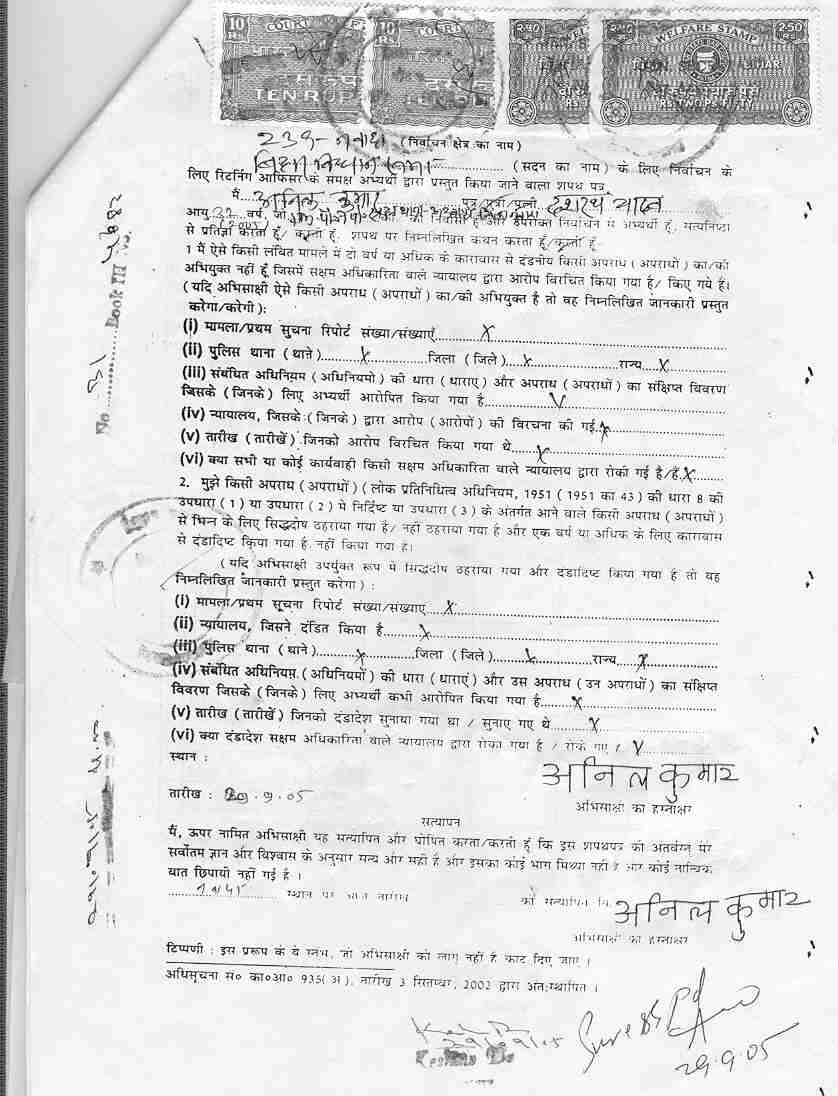 10 RS COURT FEE
10 RS COURT
TEN RUPEES
WELFARE STAMP 250
RS TWO FIFTY
239- नवादा (निर्वाचन क्षेत्र का नाम)
बिहार विधान सभा (सदन का नाम) के लिए निर्वाचन के
लिए रिटर्निंग आफिसर के समक्ष अभ्यर्थी द्वारा प्रस्तुत किया जाने वाला शपथ पत्र
मैं अनिल कुमार पुत्र/पुत्री/पत्नी दशरथ यादव
आयु वर्ष, जो का निवासी हूँ और उपरोक्त निर्वाचन में अभ्यर्थी हूँ, सत्यनिष्ठा
से प्रतिज्ञा करता हूँ/ करती हूँ, शपथ पर निम्नलिखित कथन करता हूँ/करती हूँ-
1 मैं ऐसे किसी लंबित मामले में दो वर्ष या अधिक के कारावास से दंडनीय किसी अपराध (अपराधों) का/की
अभियुक्त नहीं हूँ जिसमें सक्षम अधिकारिता वाले न्यायालय द्वारा आरोप विरचित किया गया है/ किए गये है।
(यदि अभिसाक्षी ऐसे किसी अपराध (अपराधों) का/की अभियुक्त है तो वह निम्नलिखित जानकारी प्रस्तुत
करेगा/करेगी):
(i) मामला/प्रथम सुचना रिपोर्ट संख्या/संख्याएँ X
(ii) पुलिस थाना (थाने) X जिला (जिले) X राज्य X
(iii) संबंधित अधिनियम (अधिनियमो) की धारा (धाराए) और अपराध (अपराधों) का संक्षिप्त विवरण
जिसके (जिनके) लिए अभ्यर्थी आरोपित किया गया है X
(iv) न्यायालय, जिसके (जिनके) द्वारा आरोप (आरोपों) की विरचना की गई X
(v) तारीख (तारीखें) जिनको आरोप विरचित किया गया थे X
(vi) क्या सभी या कोई कार्यवाही किसी सक्षम अधिकारिता वाले न्यायालय द्वारा रोकी गई है/हैं X
2. मुझे किसी अपराध (अपराधों) (लोक प्रतिनिधित्व अधिनियम, 1951 (1951 का 43) की धारा 8 की
उपधारा (1) या उपधारा (2) मे निर्दिष्ट या उपधारा (3) के अंतर्गत आने वाले किसी अपराध (अपराधों)
से भिन्न के लिए सिद्धदोष ठहराया गया है/ नहीं ठहराया गया है और एक वर्ष या अधिक के लिए कारावास
से दंडादिष्ट किया गया है, नहीं किया गया है।
(यदि अभिसाक्षी उपर्युक्त रूप मे सिद्धदोष ठहराया गया और दंडादिष्ट किया गया है तो वह
निम्नलिखित जानकारी प्रस्तुत करेगा) :
(i) मामला/प्रथम सूचना रिपोर्ट संख्या/संख्याए X
(ii) न्यायालय, जिसने दंडित किया है X
(iii) पुलिस थाना (थाने) X जिला (जिले) X राज्य X
(iv) संबंधित अधिनियम (अधिनियमों) की धारा (धाराएं) और उस अपराध (उन अपराधों) का संक्षिप्त
विवरण जिसके (जिनके) लिए अभ्यर्थी कभी आरोपित किया गया है X
(v) तारीख (तारीखें) जिनको दंडादेश सुनाया गया था / सुनाए गए थे X
(vi) क्या दंडादेश सक्षम अधिकारिता वाले न्यायालय द्वारा रोका गया है / रोके गए / X
स्थान :
अनिल कुमार
तारीख : 29.9.05
अभिसाक्षी का हस्ताक्षर
सत्यापन
मैं, ऊपर नामित अभिसाक्षी यह सत्यापित और घोषित करता/करती हूँ कि इस शपथपत्र की अंतर्वस्तु मेरे
सर्वोतम ज्ञान और विश्वास के अनुसार सत्य और सही है और इसका कोई भाग मिथ्या नही है और कोई तात्विक
बात छिपायी नहीं गई है ।
नवादा स्थान पर आज तारीख को सत्यापित
अनिल कुमार
अभिसाक्षी का हस्ताक्षर
टिप्पणी : इस प्ररूप के वे स्तंभ, जो अभिसाक्षी को लागू नहीं है काट दिए जाए ।
अधिसूचना सं० का०आ० 935(अ), तारीख 3 सितम्बर, 2002 द्वारा अंतःस्थापित ।
29/09/05
29.9.05
No Book III